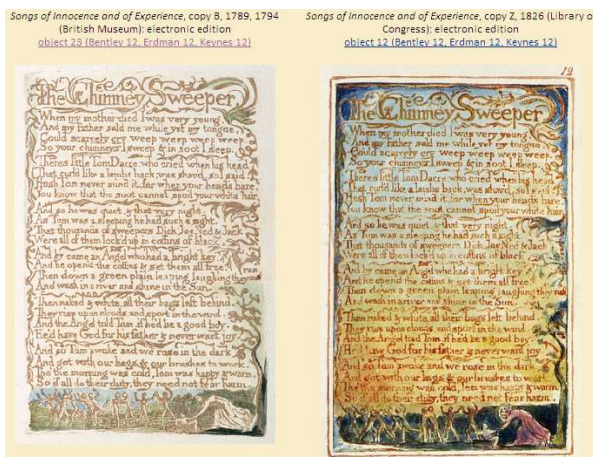 Songs of Innocence and of Experience, copy B, 1789, 1794
(British Museum): electronic edition
object 23 (Bentley 12, Erdman 12, Keynes 12)
The Chimney Sweeper
When my mother died I was very young
And my father sold me while yet my tongue
Could scarcely cry weep weep weep weep
So your chimneys I sweep & in soot I sleep.
Theres little Tom Dacre who cried when his head
That curl'd like a lambs back, was shav'd, so I said
Hush Tom never mind it, for when your heads bare,
You know that the soot cannot spoil your white hair
And so he was quiet, & that very night,
As Tom was a sleeping he had such a sight.
That thousands of sweepers Dick, Joe, Ned & Jack
Were all of them lock'd up in coffins of black,
And by came an Angel who had a bright key
And he open'd the coffins & set them all free.
Then down a green plain leaping laughing they run
And wash in a river and shine in the Sun.
Then naked & white, all their bags left behind,
They rise upon clouds, and sport in the wind.
And the Angel told Tom, if he'd be a good boy,
He'd have God for his father & never want joy
And so Tom awoke and we rose in the dark
And got with our bags & our brushes to work.
Tho the morning was cold, Tom was happy & warm,
So if all do their duty, they need not fear harm.
Songs of Innocence and of Experience, copy Z, 1826 (Library of
Congress): electronic edition
object 12 (Bentley 12, Erdman 12, Keynes 12)
12
The Chimney Sweeper
When my mother died I was very young
And my father sold me while yet my tongue
Could scarcely cry weep weep weep weep
So your chimneys I sweep & in soot I sleep.
Theres little Tom Dacre who cried when his head
That curl'd like a lambs back, was shav'd, so I said
Hush Tom never mind it, for when your heads bare,
You know that the soot cannot spoil your white hair
And so he was quiet, & that very night,
As Tom was a sleeping he had such a sight.
That thousands of sweepers Dick, Joe, Ned & Jack
Were all of them lock'd up in coffins of black,
And by came an Angel who had a bright key
And he open'd the coffins & set them all free.
Then down a green plain leaping laughing they run
And wash in a river and shine in the Sun.
Then naked & white, all their bags left behind,
They rise upon clouds, and sport in the wind.
And the Angel told Tom, if he'd be a good boy,
He'd have God for his father & never want joy
And so Tom awoke and we rose in the dark
And got with our bags & our brushes to work.
Tho the morning was cold, Tom was happy & warm,
So if all do their duty, they need not fear harm.